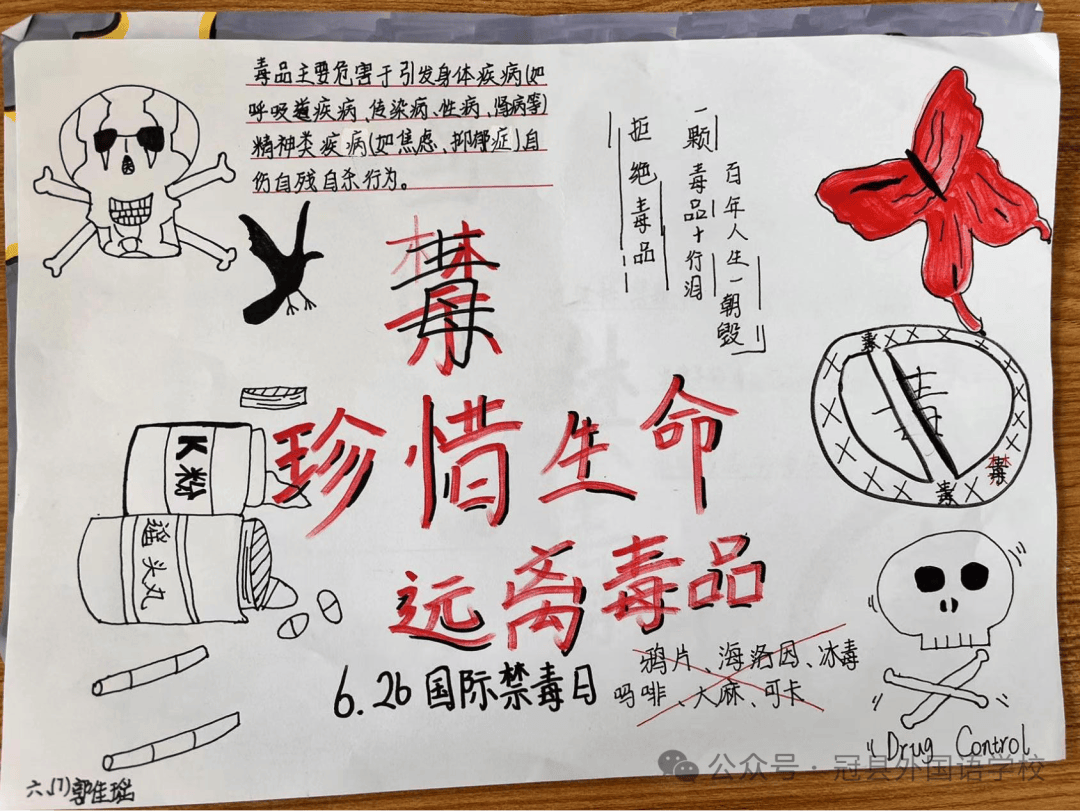 毒品主要危害于引发身体疾病(如
呼吸道疾病、传染病、性病、肾病等)
精神类疾病(如焦虑、抑郁症)自
伤自残自杀行为。
百年人生一朝毁
一颗毒品十行泪
拒绝毒品
禁毒
珍惜生命
远离毒品
K粉
摇头丸
毒
禁毒
禁毒
禁毒
6.26国际禁毒日
鸦片、海洛因、冰毒
吗啡、大麻、可卡
Drug Control
六、(1)郭佳瑶
公众号·冠县外国语学校